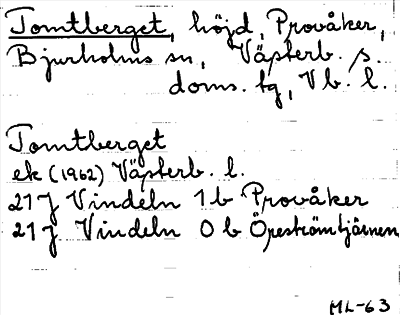 Tomtberget, höjd, Provåker,
Bjurholms sn, Västerb. s.
doms. tg, Vb. l.
Tomtberget
ek (1962) Västerb. l.
21 J Vindeln 1 b Provåker
21 J Vindeln 0 b Öreströmtjärnen
ML-63